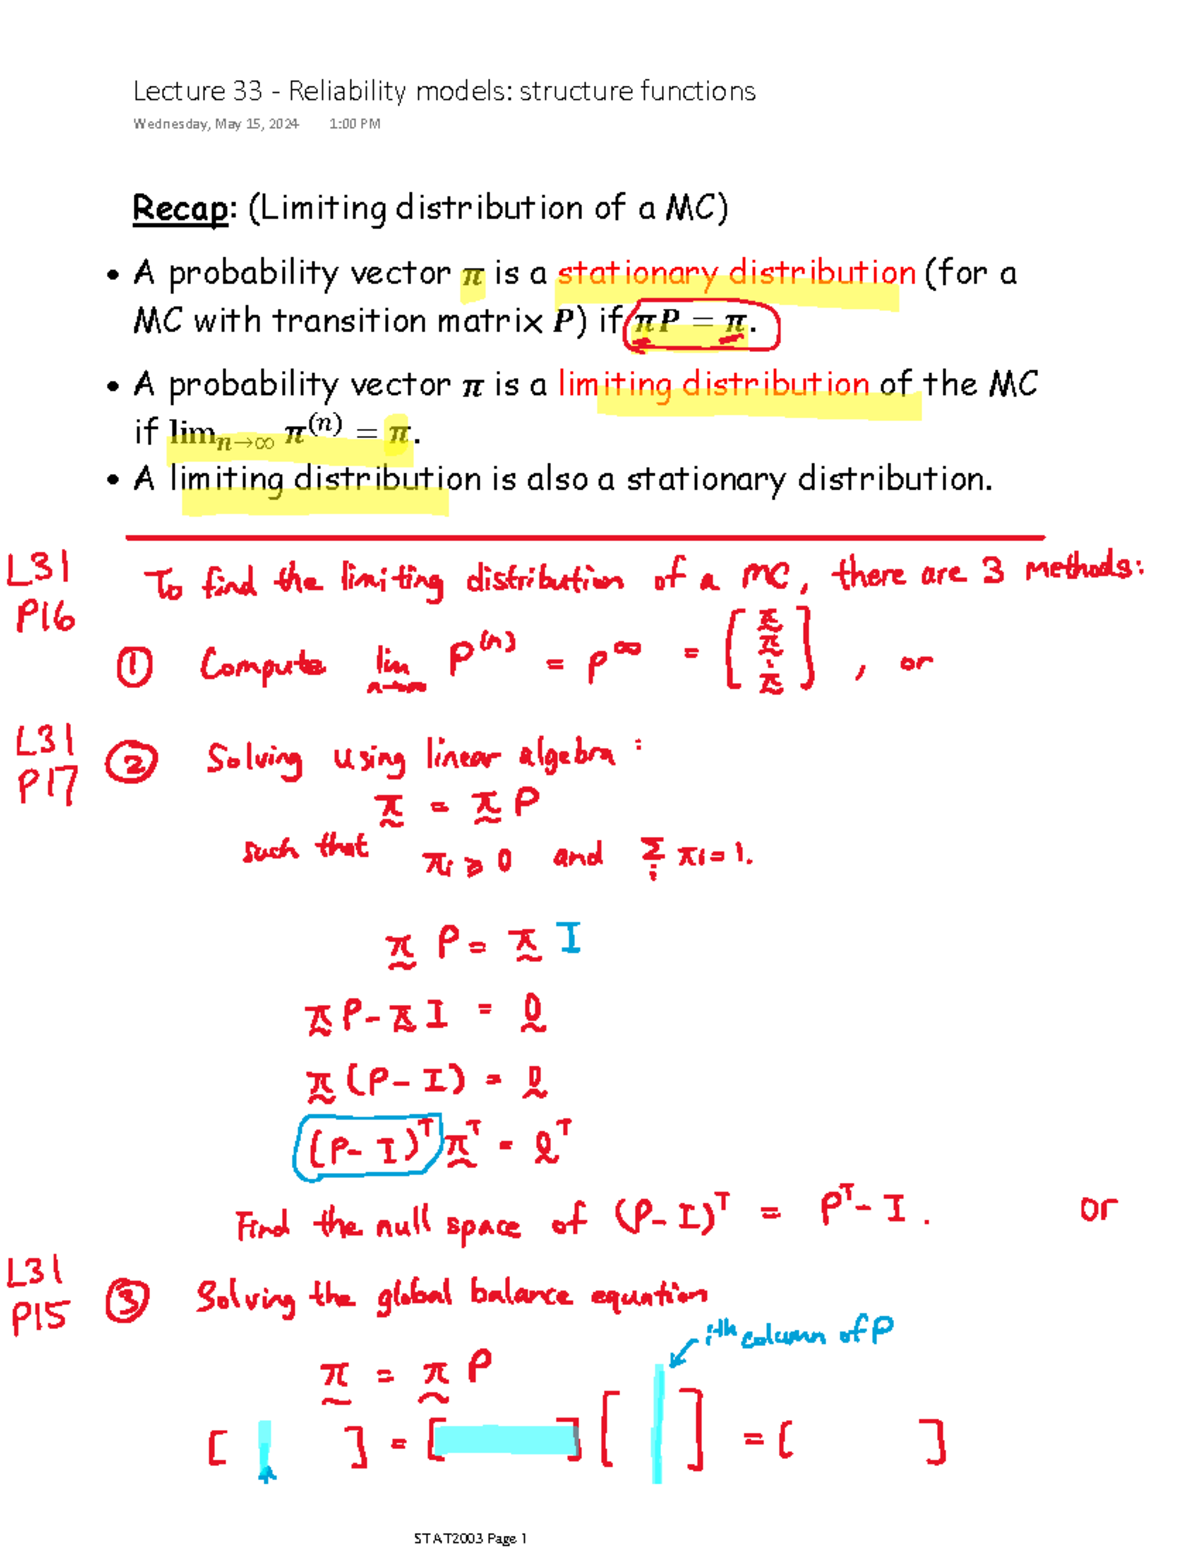 Lecture 33 - Reliability models: structure functions
Wednesday, May 15, 2024 1:00 PM
Recap: (Limiting distribution of a MC)
• A probability vector π is a stationary distribution (for a
MC with transition matrix P) if πP = π.
• A probability vector π is a limiting distribution of the MC
if limₙ→∞ π⁽ⁿ⁾ = π.
• A limiting distribution is also a stationary distribution.
L31
P16
To find the limiting distribution of a MC, there are 3 methods:
① Compute lim n→∞ P⁽ⁿ⁾ = P^∞ = [π π ⋮ π], or
L31
P17
② Solving using linear algebra:
π = π P
such that πi ≥ 0 and Σi πi = 1.
π P = π I
π P - π I = 0
π (P - I) = 0
(P - I)ᵀ πᵀ = 0ᵀ
Find the null space of (P - I)ᵀ = Pᵀ - I. or
L31
P15
③ Solving the global balance equation
ith column of P
π = π P
[ ] = [ ] [ ] = [ ]
STAT2003 Page 1